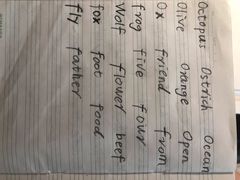 Octopus Ostrich Ocean
Olive Orange Open
Ox friend from
frog five four
Wolf flower beef
fox foot food
fly father